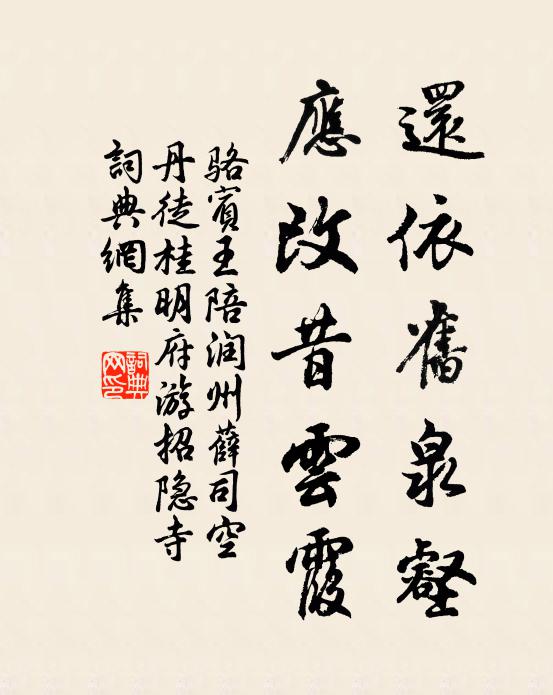 還依舊泉壑
應改昔雲霞
骆賓王陪润州薛司空
丹徒桂明府游招隐寺
詞典網集
詞典網印